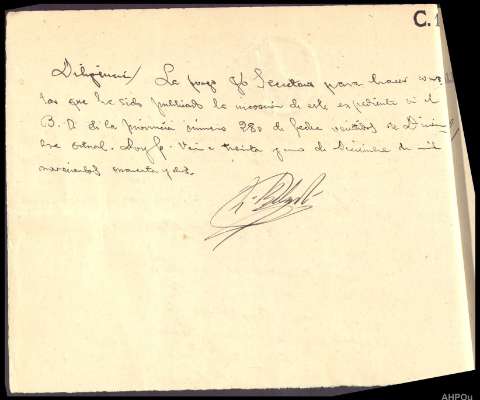 C.1
Diligencia/ La pongo yo Secretario para hacer
que ha sido publicado la incoación de este expediente en el
B. O. de la provincia número 280 de fecha
actual. Doy fe. treinta y uno de Diciembre de mil
novecientos cuarenta y dos.
AHPOu